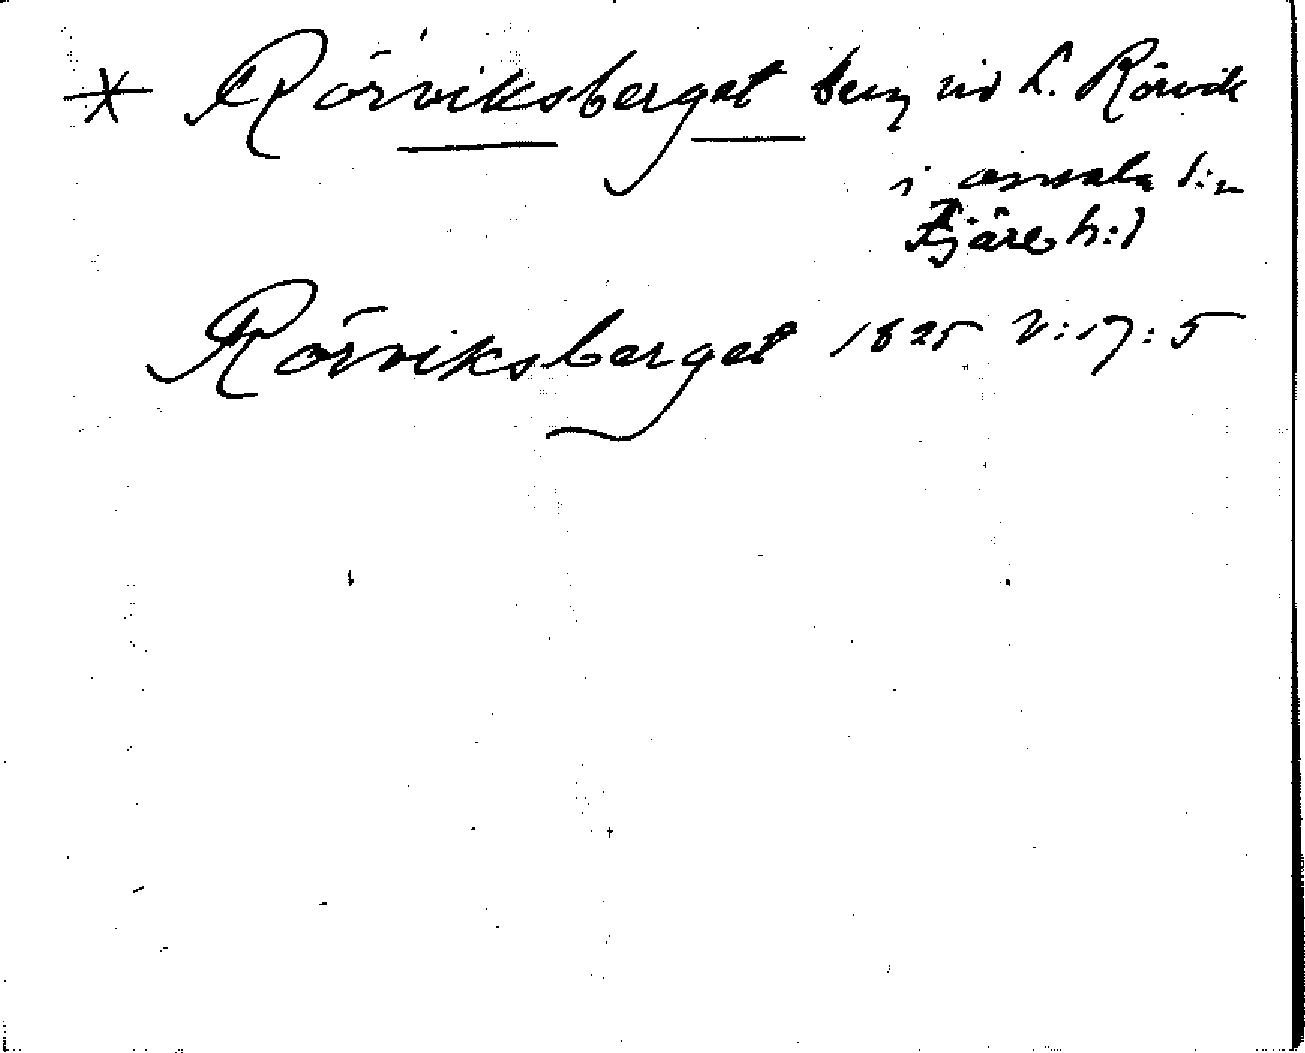 * Rörviksberget berg vid L. Rörvik
i onsala s:n
Fjäre h:d
Rörviksberget 1825 V:17:5